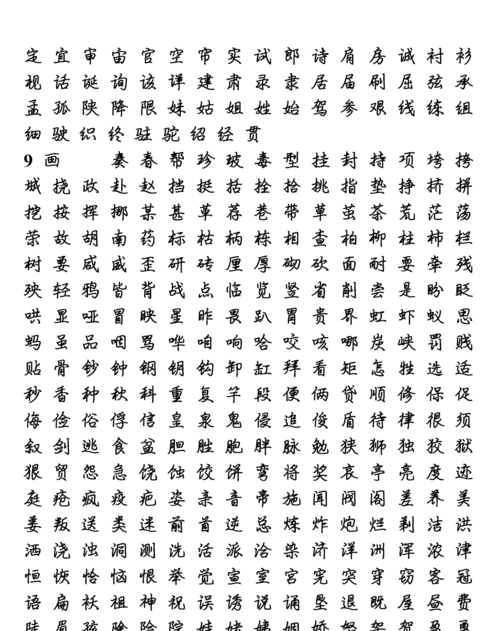 定宜审宙官空帘实试郎诗肩房诚衬衫
视话诞询该详建肃录隶居届刷屈弦承
孟孤陕降限妹姑姐姓始驾参艰线练组
细驶织终驻驼绍经贯
9画 奏春帮珍玻毒型挂封持项垮挎
城挠政赴赵挡挺括拴拾挑指垫挣挤拼
挖按挥挪某甚革荐巷带草茧茶荒茫荡
荣故胡南药标枯柄栋相查柏柳柱柿栏
树要咸威歪研砖厘厚砌砍面耐耍牵残
殃轻鸦皆背战点临览竖省削尝是盼眨
哄显哑冒映星昨畏趴胃贵界虹虾蚁思
蚂虽品咽骂哗咱响哈咬咳哪炭峡罚贱
贴骨钞钟钢钥钩卸缸拜看矩怎牲选适
秒香种秋科重复竿段便俩贷顺修保促
侮俭俗俘信皇泉鬼侵追俊盾待律很须
叙剑逃食盆胆胜胞胖脉勉狭狮独狡狱
狠贸怨急饶蚀饺饼弯将奖哀亭亮度迹
庭疮疯疫疤姿亲音帝施闻阀阁差养美
姜叛送类迷前首逆总炼炸炮烂剃洁洪
洒浇浊洞测洗活派洽染济洋洲浑浓津
恒恢恰恼恨举觉宣室宫宪突穿窃客冠
语扁袄祖神祝误诱说诵垦退既屋昼费
陡眉孩除险院娃姥姨姻娇怒架贺盈勇